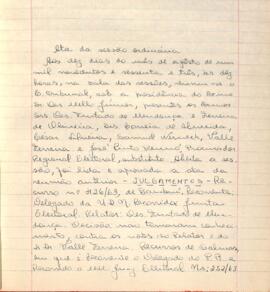 Ata da sessão ordinária
Aos dez dias do mês de agôsto de um
mil novecentos e sessenta e três, às dez
horas, na sala das sessões, reuniu-se o
E. Tribunal, sob a presidência do Exmo.
Sr. Des. Mello Júnior, presentes os Exmos.
Srs. Des. Furtado de Mendonça e Ferreira
de Oliveira, Drs. Correia de Almeida,
César Silveira, Samuel Valle
Ferreira e José Pinto Procurador
Regional Eleitoral, substituto. Aberta a ses-
são, foi lida e aprovada a ata da
reunião anterior. - JULGAMENTOS - Re-
curso nº 126/63, de Recorrente,
Delegado da U.D.N. Recorrida: Junta
Eleitoral. Relator: Des. Furtado de Men-
donça. Decisão: não tomaram conheci-
mento, contra os votos do Relator e do
Dr. Valle Ferreira. Recursos de
em que é Recorrente o Delegado do P.R. e
Recorrido o MM. Juiz Eleitoral Ns. 252/63